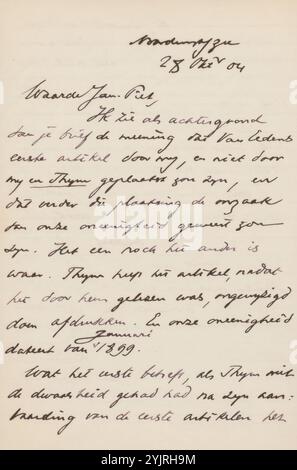 Noordwijk/Zee
28 Oktr 04
Waarde Jan-Piet,
Ik zie als achtergrond
van je brief de meening dat Van Eeden's
eerste artikel door my, en niet door
my en Thym geplaatst zou zyn, en
dat onder die plaatsing de oorzaak
van onze oneenigheid geweest zou
zyn. Het een noch het ander is
waar. Thym heeft het artikel, nadat
het door hem gelezen was, ongewyzigd
doen afdrukken. En onze oneenigheid
dateert van Januari '1899.
Wat het eerste betreft, als Thym niet
de dwaasheid gehad had na zyn aan-
vaarding van de eerste artikelen het
alamy
Image ID: 2YJRH9M
www.alamy.com